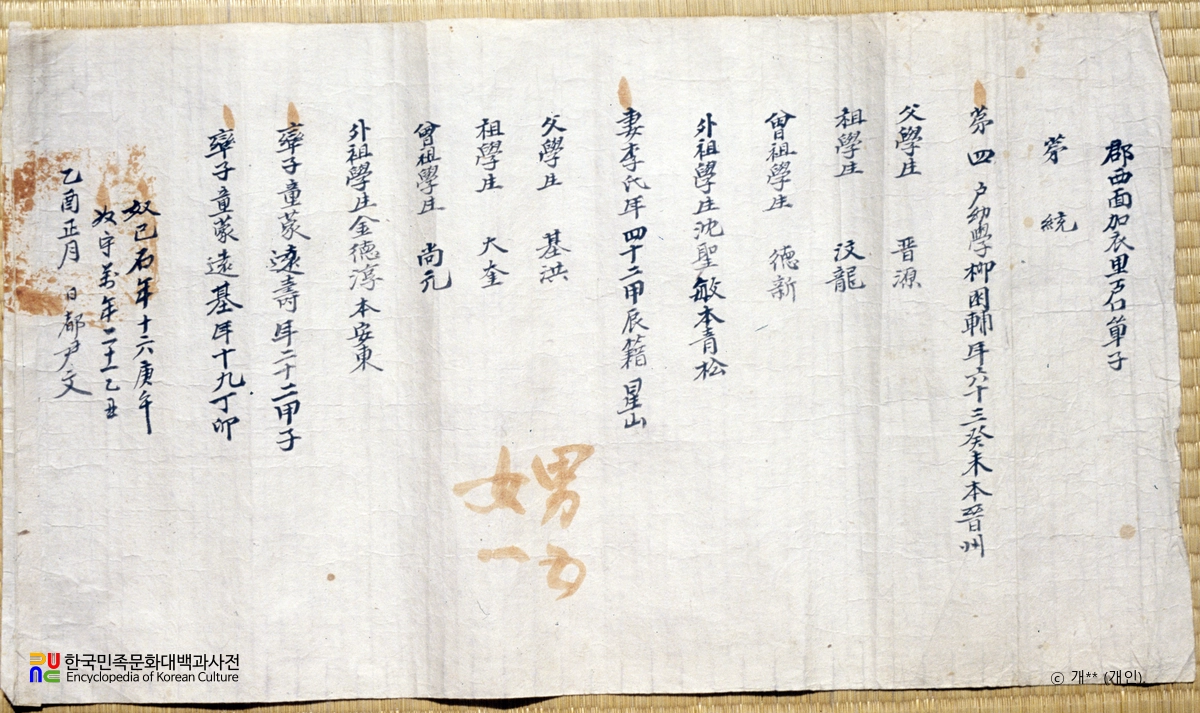 郡西面加衣里戶口單子
第 統
第四 戶幼學柳因輔年六十三癸未本晉州
父學生 晋源
祖學生 汶龍
曾祖學生 德新
外祖學生沈聖敏本青松
妻李氏年四十二甲辰籍星山
父學生 基洪
祖學生 大奎
曾祖學生 尚元
外祖學生金德淳本安東
率子童蒙遠壽年二十二甲子
率子童蒙遠基年十九丁卯
奴已石年十六庚午
奴守萬年二十一乙丑
乙酉正月 日都尹文
男五
女一
한국민족문화대백과사전
Encyclopedia of Korean Culture
ⓒ 개** (개인)